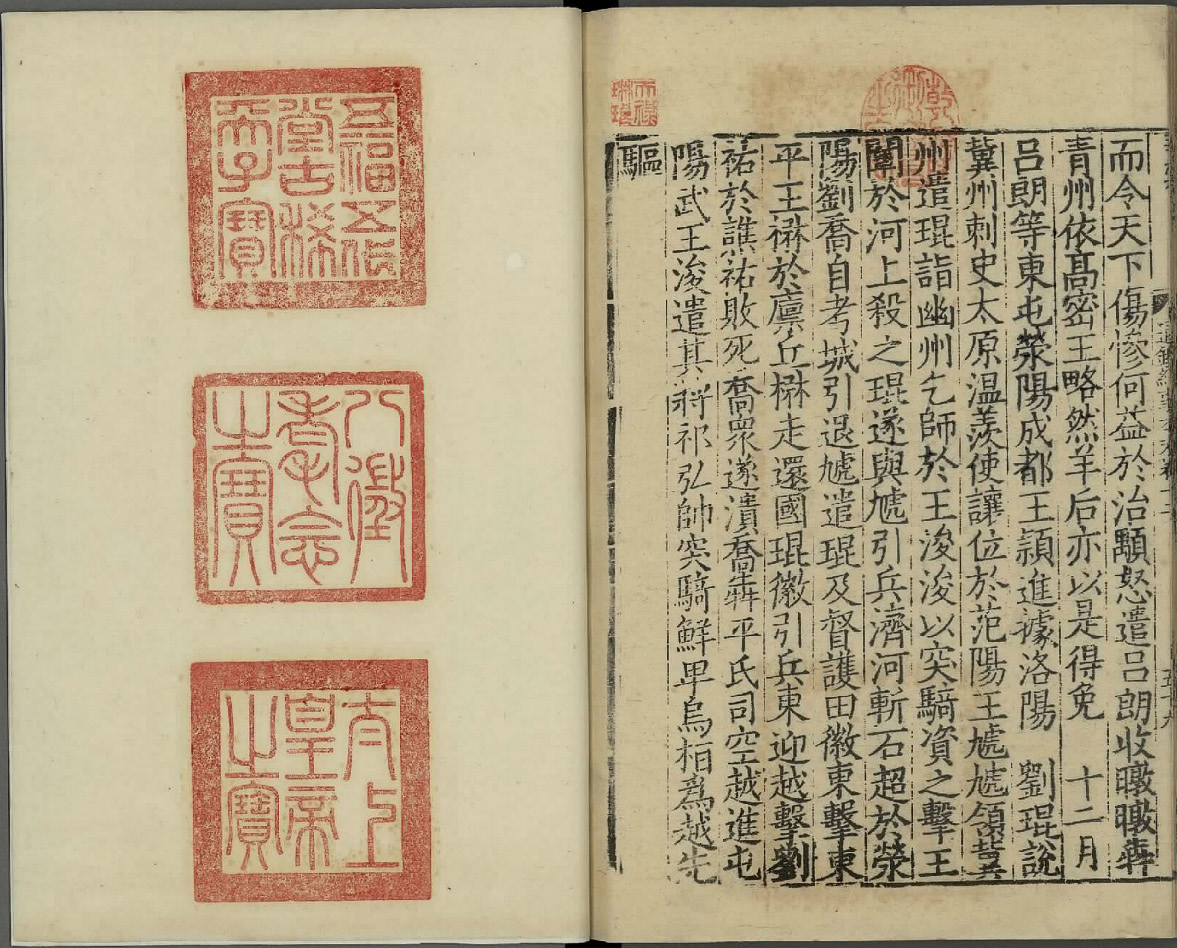 而令天下傷慘何益於治顒怒遣吕朗收暾暾犇
青州依髙密王略然羊后亦以是得免 十二月
吕朗等東屯滎陽成都王頴進據洛陽 劉琨說
兾州刺史太原温羡使讓位於范陽王虓虓領兾
州遣琨詣幽州乞師於王浚浚以突騎資之擊王
闡於河上殺之琨遂與虓引兵濟河斬石超於滎
陽劉喬自考城引退虓遣琨及督護田徽東擊東
平王楙於廪丘楙走還國琨徽引兵東迎越擊劉
祐於譙祐敗死喬衆遂潰喬犇平氏司空越進屯
陽武王浚遣其將祁弘帥突騎鮮卑烏桓爲越先
驅
乾隆御覽之寶
天祿琳琅
五福五代堂古稀天子寶
八徵耄念之寶
太上皇帝之寶